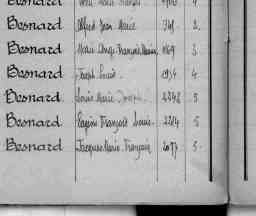 Besnard Alfred Jean Marie 348 2
Besnard Marie Ange François Marie 1169 3
Besnard Joseph Louis 1934 4
Besnard Louis Marie Joseph 2248 5
Besnard Eugène François Louis 2214 5
Besnard Jacques Marie François 2097 5